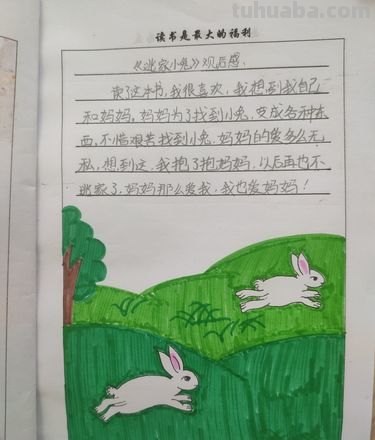 tuhuaba.com
读书是最大的福利
《逃家小兔》观后感.
读了这本书,我很喜欢,我想到我自己
和妈妈,妈妈为了找到小兔,变成各种东
西,不惜艰苦找到小兔.妈妈的爱多么无
私,想到这,我抱了抱妈妈,以后再也不
逃家了.妈妈那么爱我,我也爱妈妈!